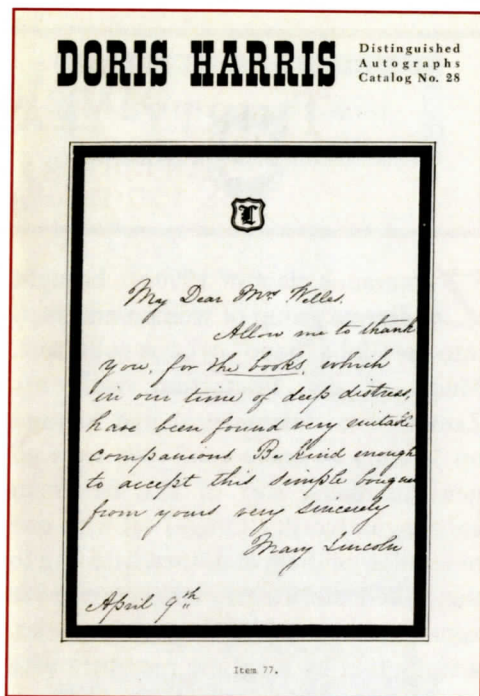 DORIS HARRIS
Distinguished
Autographs
Catalog No. 28
L
My Dear Mrs Welles.
Allow me to thank
you, for the books, which
in our time of deep distress,
have been found very suitable
companions Be kind enough
to accept this simple bouquet
from yours very sincerely
Mary Lincoln
April 9th
Item 77.